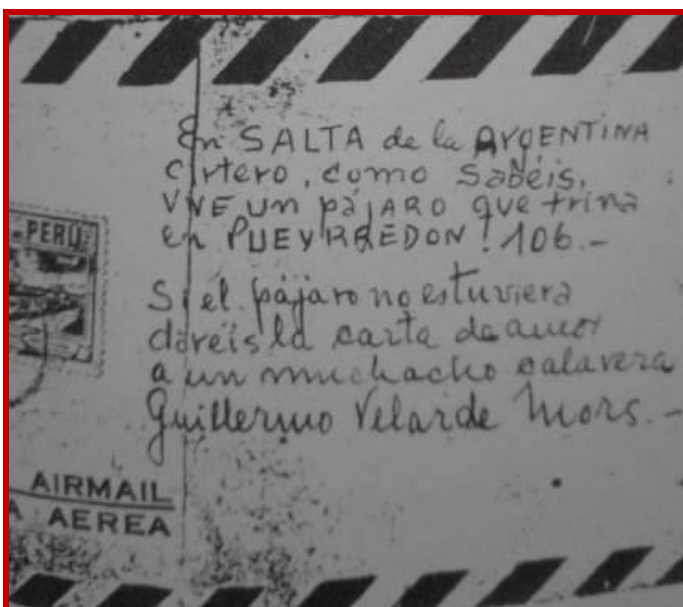 En SALTA de la ARGENTINA
Cartero, como Sabéis,
VIVE un pájARO que trina
en PUEYRREDON! 106.-
Si el pájaro no estuviera
daréis la carta de amor
a un muchacho calavera
Guillermo Velarde Mors.-
PERU
AIRMAIL
A AEREA